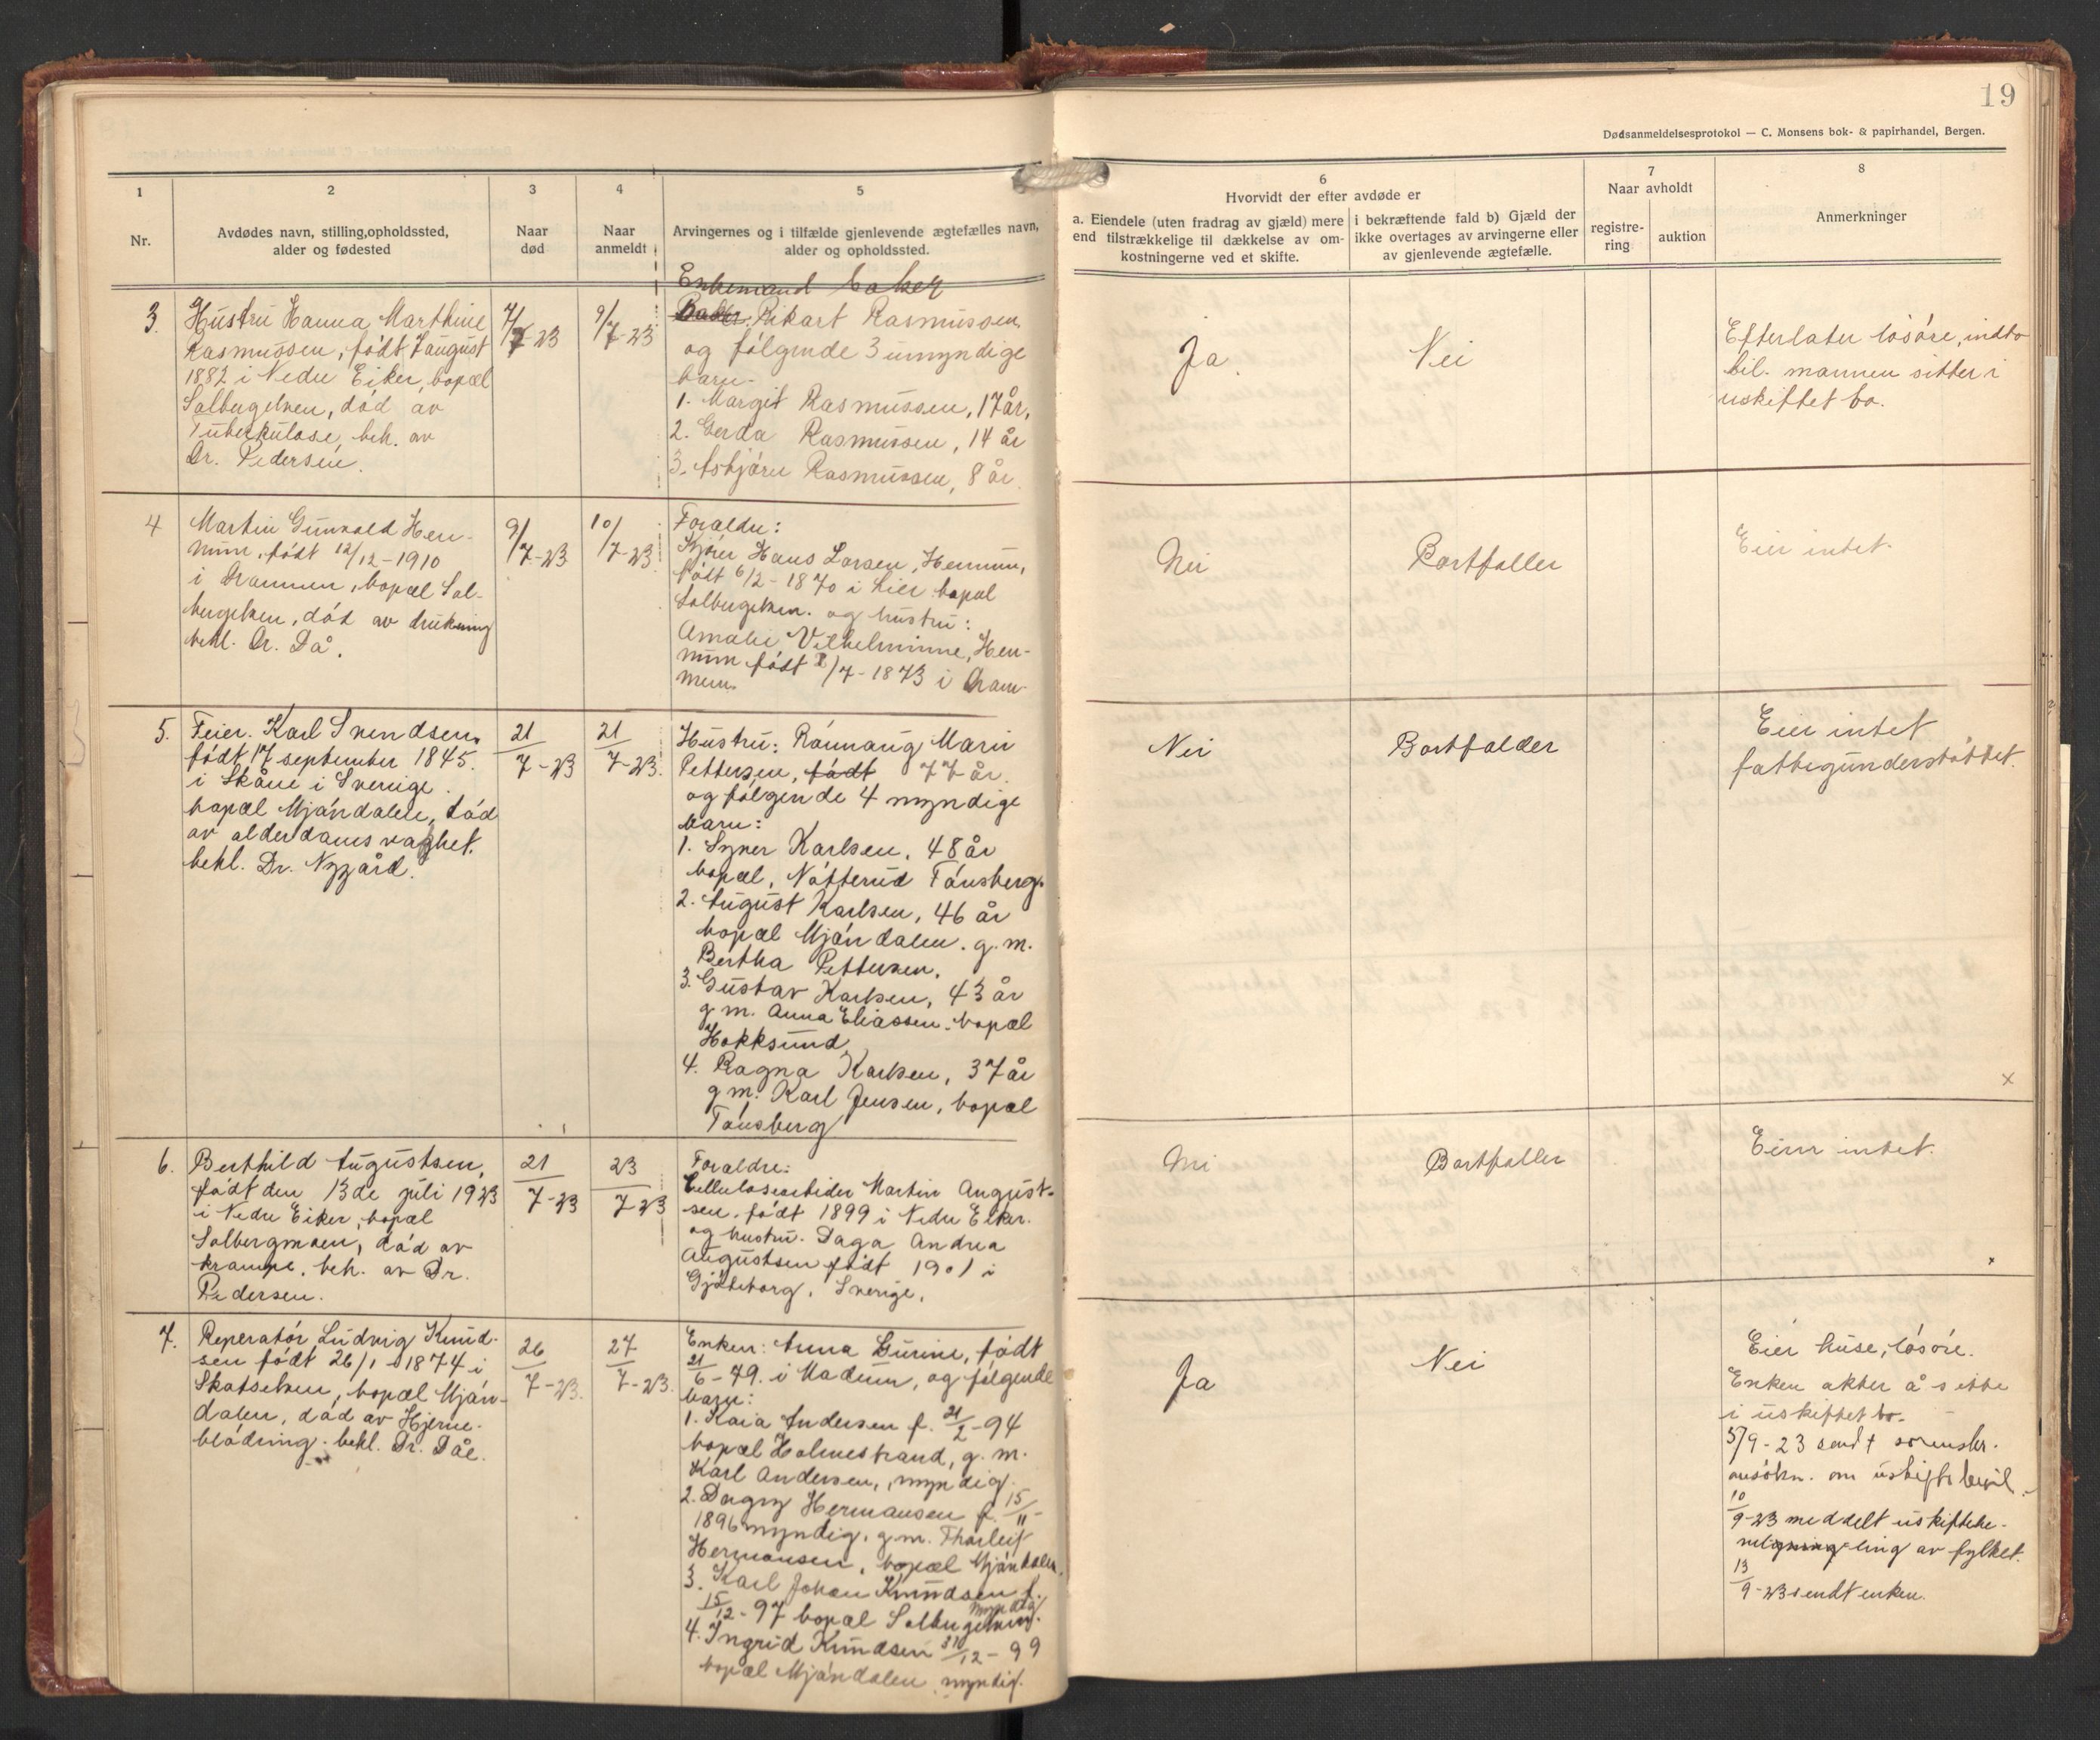 19
Dødsanmeldelsesprotokol — C. Monsens bok- & papirhandel, Bergen.
1
Nr.
2
Avdødes navn, stilling, opholdssted,
alder og fødested
3
Naar
død
4
Naar
anmeldt
5
Arvingernes og i tilfælde gjenlevende ægtefælles navn,
alder og opholdssted.
6
Hvorvidt der efter avdøde er
a. Eiendele (uten fradrag av gjæld) mere
end tilstrækkelige til dækkelse av om-
kostningerne ved et skifte.
i bekræftende fald b) Gjæld der
ikke overtages av arvingerne eller
av gjenlevende ægtefælle.
7
Naar avholdt
registre-
ring
auktion
8
Anmerkninger
3.
Hustru Hanna Marthine
Rasmussen, født 7 august
1882 i Nedre Eiker, bopæl
Solbergelven, død av
Tuberkulose, beh. av
Dr. Pedersen.
7/7-23
9/7-23
Enkemand baker
Baker Rikart Rasmussen
og følgende 3 umyndige
barn.
1. Margit Rasmussen, 17 år,
2. Gerda Rasmussen, 14 år
3. Asbjørn Rasmussen, 8 år.
Ja.
Nei
Efterlater løsøre, indbo
bil. mannen sitter i
uskiftet bo.
4
Martin Gunvald Hen-
num, født 12/12-1910
i Drammen, bopæl Sol-
bergelven, død av drukning
behl. Dr. Då.
9/7-23
10/7-23
Forældre:
Kjører Hans Larsen, Hennum,
født 6/2-1870 i Lier bopæl
Solbergelven. og hustru:
Amalie Vilhelmine, Hen-
num født /7-1873 i Dram-
men.
Nei
Bortfaller
Eier intet.
5.
Feier. Karl Svendsen,
født 17 september 1845.
i Skåne i Sverige.
bopæl Mjøndalen, død
av alderdoms svaghet.
behl. Dr. Nygård.
21/7-23
21/7-23.
Hustru: Rønnaug Marie
Pettersen, født 77 år.
og følgende 4 myndige
barn:
1. Syver Karlsen, 48 år
bopæl, Nøtterud Tønsberg.
2. August Karlsen, 46 år
bopæl Mjøndalen. g.m.
Bertha Pettersen.
3. Gustav Karlsen, 43 år
g.m. Anna Eliassen. bopæl
Hokksund
4. Ragna Karlsen, 37 år
g.m. Karl Jensen, bopæl
Tønsberg
Nei
Bortfalder
Eier intet
fattigunderstøttet.
x
6.
Berthild Augustsen,
født den 13de juli 1923
i Nedre Eiker, bopæl
Solbergmoen, død av
krampe, beh. av Dr.
Pedersen.
21/7-23
23/7-23
Forældre:
Cellulosearbeider Martin August-
sen. født 1899 i Nedre Eiker.
og hustru. Daga Andrea
Augustsen født 1901 i
Gjøteborg, Sverige.
Nei
Bortfaller
Eier intet.
x
7.
Reperatør Ludvig Knud-
sen født 26/1-1874 i
Skotselven, bopæl Mjøn-
dalen, død av Hjerne-
blødning. behl. Dr. Dåe.
26/7-23.
27/7-23.
Enken: Anna Gurine, født
21/6-79. i Modum, og følgende
barn:
1. Kaia Andersen f. 21/2-94
bopæl Holmestrand, g.m.
Karl Andersen, myndig.
2. Dagny Hermansen f. 15/11-
1896 myndig, g.m. Thorleif
Hermansen, bopæl Mjøndalen.
3. Karl Johan Knudsen f.
15/12-97 bopæl Solbergelven. myndig
4. Ingrid Knudsen 31/12-99
bopæl Mjøndalen, myndig.
Ja
Nei
Eier huse, løsøre.
Enken akter å sitte
i uskiftet bo.
5/9-23 sendt sorenskr.
ansøkn. om uskiftebevil.
10/9-23 meddelt uskiftebe-
ling av fylket.
13/9-23 sendt enken.